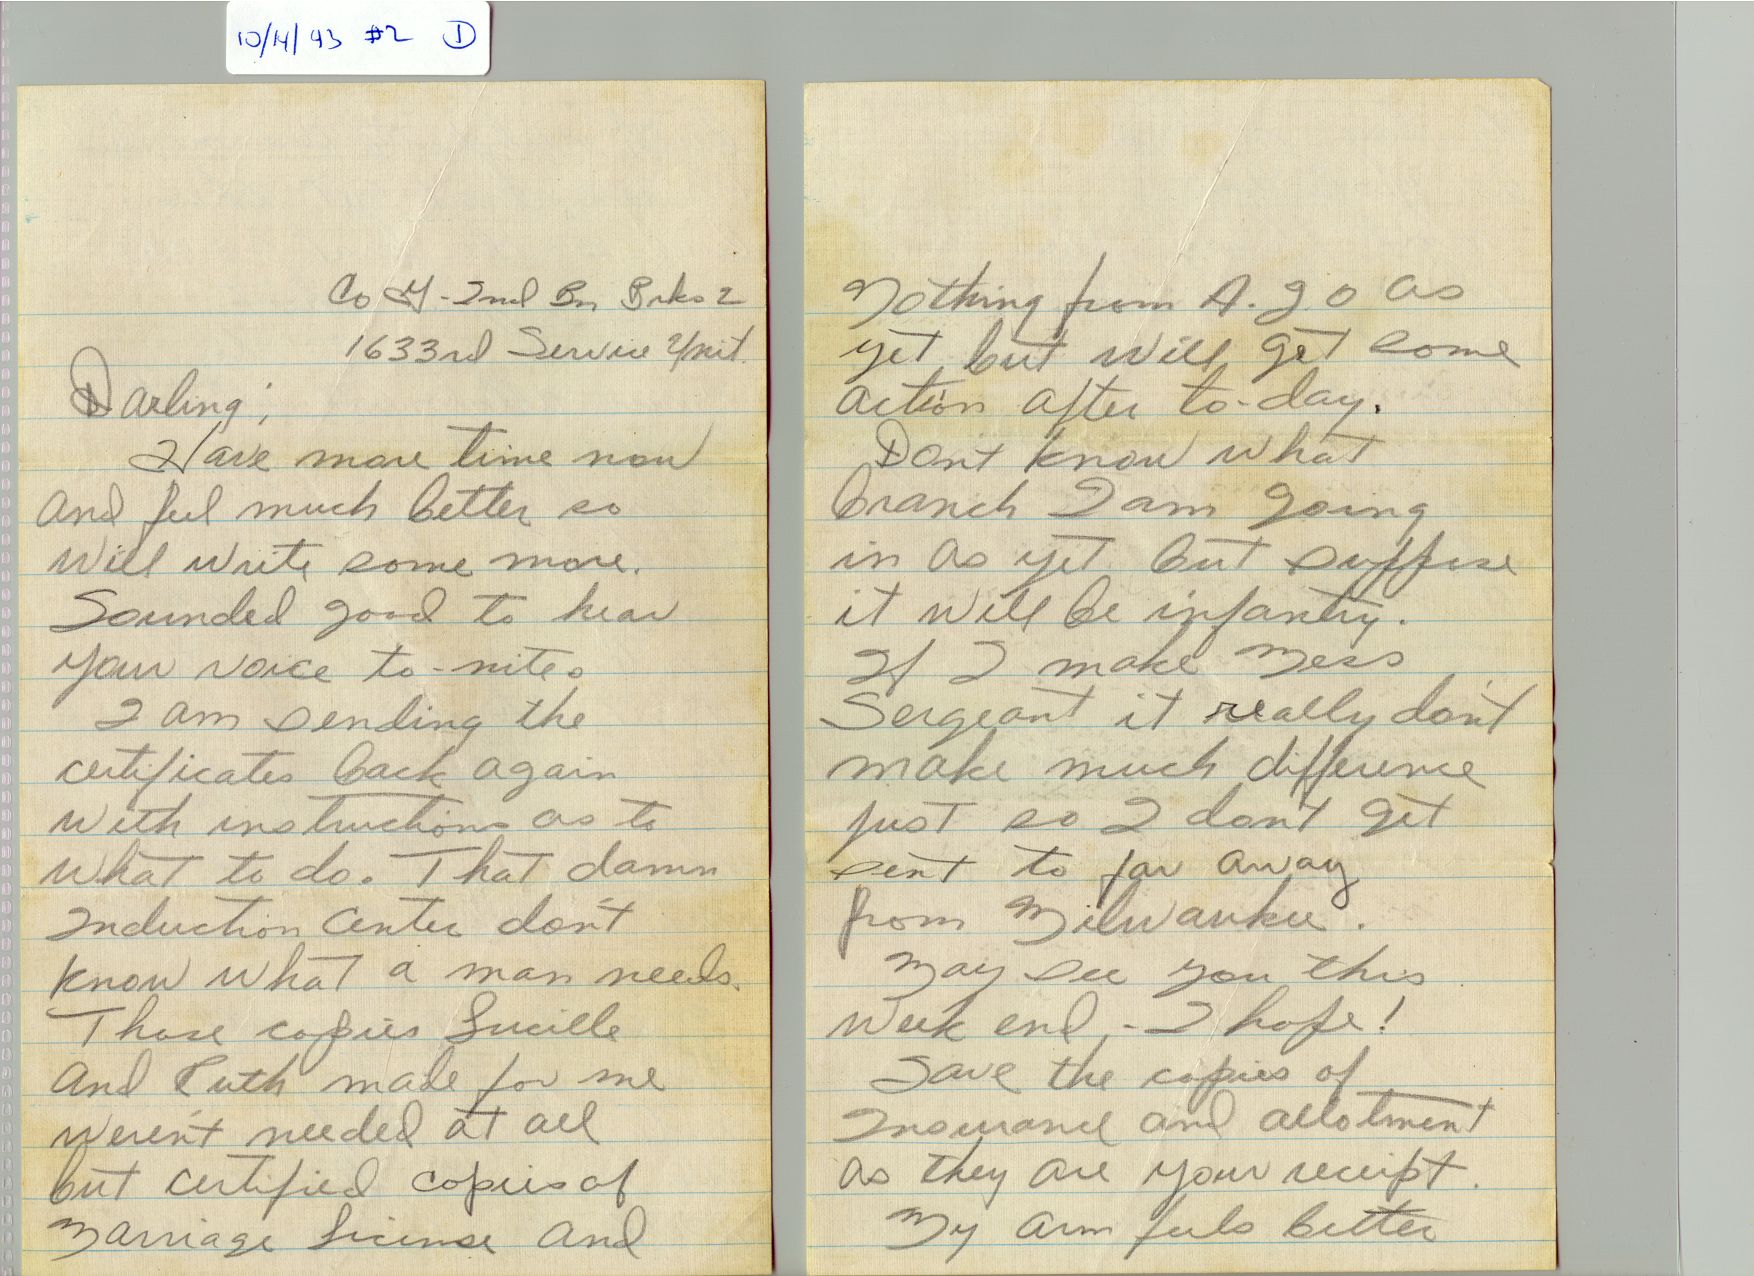 10/14/43 #2 D
Co G - 2nd Bn Brks 2
1633rd Service Unit.
Darling;
Have more time now
and feel much better so
will write some more.
Sounded good to hear
your voice to-nite.
I am sending the
certificates back again
with instructions as to
what to do. That damn
Induction Center don't
know what a man needs.
Those copies Lucille
and Ruth made for me
weren't needed at all
but certified copies of
Marriage License and
Nothing from A.G.O as
yet but will get some
action after to-day.
Dont know what
branch I am going
in as yet but suppose
it will be infantry.
If I make Mess
Sergeant it really don't
make much difference
just so I don't get
sent to far away
from Milwaukee.
May see you this
week end, - I hope!
Save the copies of
Insurance and allotment
as they are your receipt.
My arm feels better